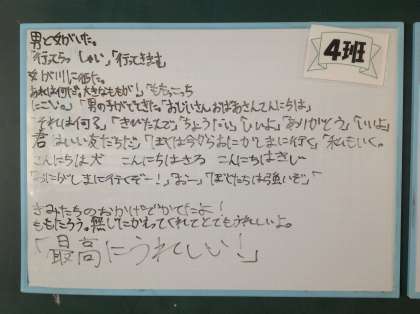 4班
男と女がいた。
「行ってらっしゃい」「行ってきます
女が川に着た。
あれは何だ。大きなももが!」「ももこっち
にこい。」「男の子がでてきた。「おじいさんおばあさんこんにちは」
「それは何?」「きびだんご」「ちょうだい」「いいよ」「ありがとう」「いいよ」
君はいい友だちだ」「ぼくは今からおにがしまに行く」「私もいく。
こんにちは犬 こんにちはさる こんにちはきじ
「おにがしまに行くぞー!」「おー」「ぼくたちは強いぞ」「
きみたちのおかげでかてたよ!
ももたろう。無じにかえってくれてとてもうれしいよ。
「最高にうれしい!」